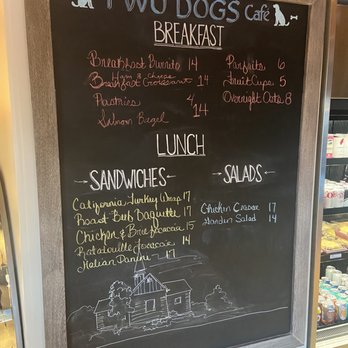 TWO DOGS Café
BREAKFAST
Breakfast Burrito 14
Ham & Cheese
Breakfast Croissant 14
Pastries 4
Salmon Bagel 14
Parfaits 6
Fruit Cups 5
Overnight Oats 8
LUNCH
SANDWICHES
California Turkey Wrap 17
Roast Beef Baguette 17
Chicken & Brie Focaccia 15
Ratatouille Focaccia 14
Italian Panini 17
SALADS
Chicken Caesar 17
Garden Salad 14